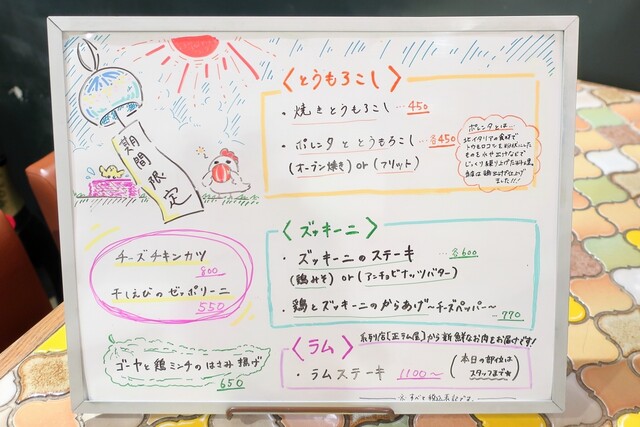 期間限定
〈とうもろこし〉
・焼きとうもろこし …450
・ポレンタととうもろこし …各450
(オーブン焼き) or (フリット)
ポレンタとは…
北イタリアの食材で
トウモロコシを粉状にした
ものを
じっくり練り上げた料理。
当店は鶏出汁で仕上げ
ました!!
チーズチキンカツ
800
干しえびのゼッポリーニ
550
ゴーヤと鶏ミンチのはさみ揚げ
650
〈ズッキーニ〉
・ズッキーニのステーキ …各600
(鶏みそ) or (アンチョビナッツバター)
・鶏とズッキーニのからあげ〜チーズペッパー〜
…770
〈ラム〉
系列店[正ラム店]から新鮮なお肉をお届けです!
・ラムステーキ 1100〜
(本日の部位は
スタッフまで★)
※すべて税込表記です。